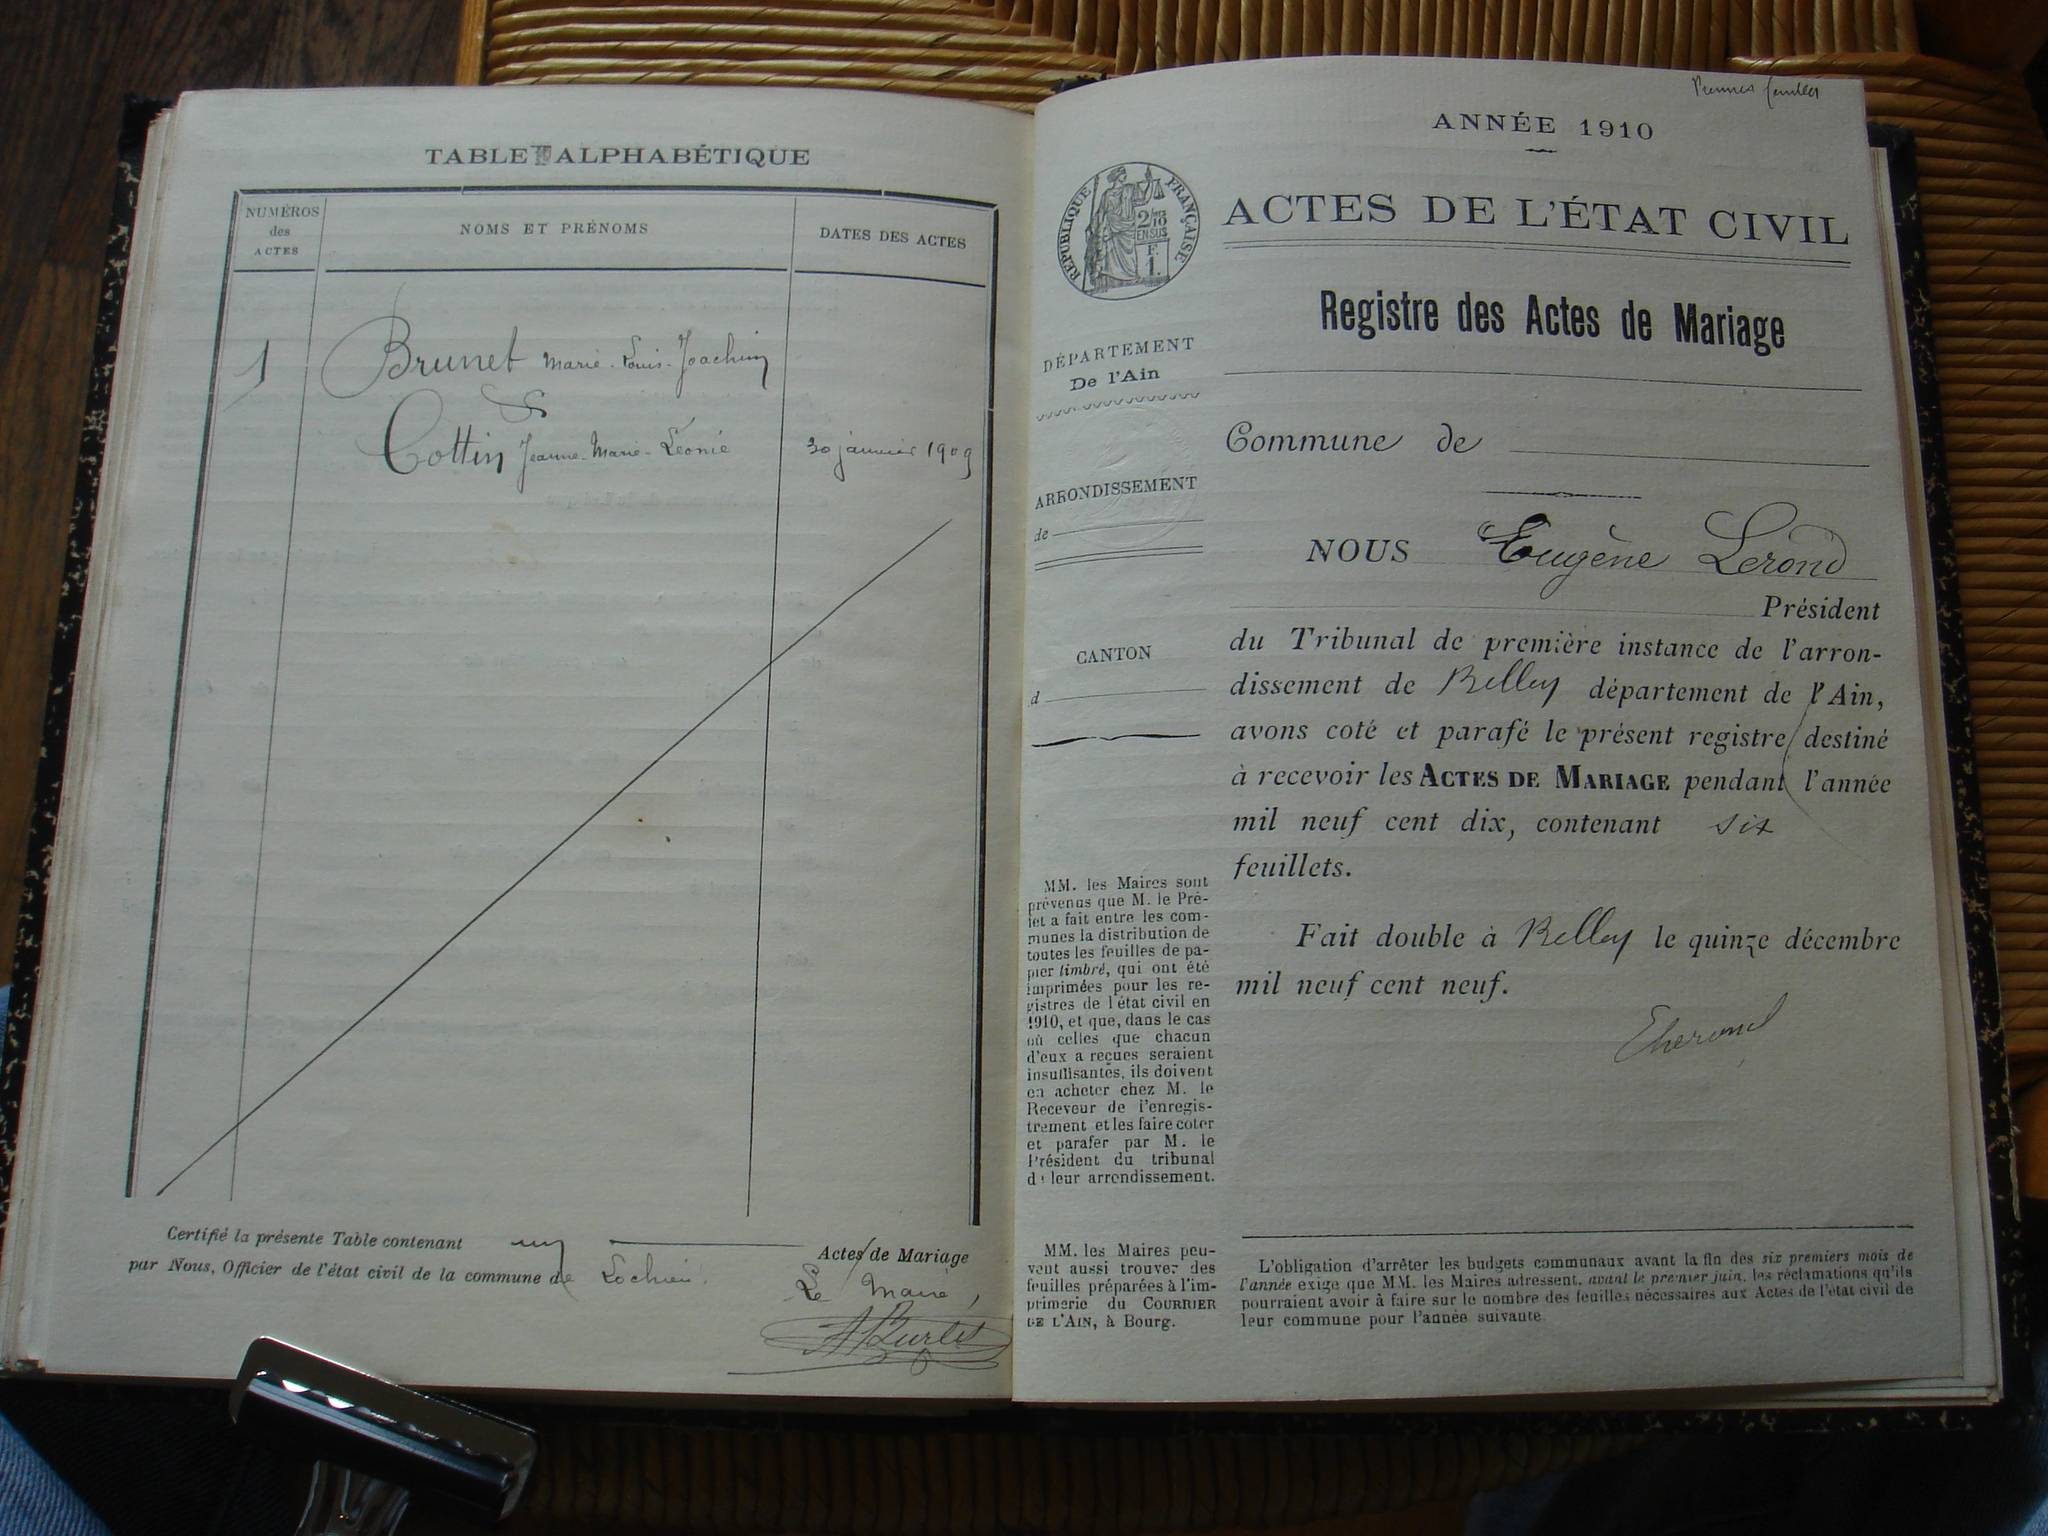 TABLE ALPHABÉTIQUE
NUMÉROS
des
ACTES
NOMS ET PRÉNOMS
DATES DES ACTES
1
Brunet Marie-Louis-Joachim
&
Cottin Jeanne-Marie-Léonie
30 janvier 1909
Certifié la présente Table contenant un Actes de Mariage
par Nous, Officier de l'état civil de la commune de Lochieu.
Le Maire,
ANNÉE 1910
RÉPUBLIQUE FRANÇAISE
2/10
EN SUS
F.
1.
ACTES DE L'ÉTAT CIVIL
Registre des Actes de Mariage
DÉPARTEMENT
De l'Ain
ARRONDISSEMENT
de
CANTON
d
MM. les Maires sont
prévenus que M. le Pré-
fet a fait entre les com-
munes la distribution de
toutes les feuilles de pa-
pier timbré, qui ont été
imprimées pour les re-
gistres de l'état civil en
1910, et que, dans le cas
où celles que chacun
d'eux a reçues seraient
insuffisantes, ils doivent
en acheter chez M. le
Receveur de l'enregis-
trement et les faire coter
et parafer par M. le
Président du tribunal
de leur arrondissement.
MM. les Maires peu-
vent aussi trouver des
feuilles préparées à l'im-
primerie du COURRIER
DE L'AIN, à Bourg.
Commune de
NOUS Eugène Lerond
Président
du Tribunal de première instance de l'arron-
dissement de Belley département de l'Ain,
avons coté et parafé le présent registre destiné
à recevoir les ACTES DE MARIAGE pendant l'année
mil neuf cent dix, contenant six
feuillets.
Fait double à Belley le quinze décembre
mil neuf cent neuf.
L'obligation d'arrêter les budgets communaux avant la fin des six premiers mois de
l'année exige que MM. les Maires adressent, avant le premier juin, les réclamations qu'ils
pourraient avoir à faire sur le nombre des feuilles nécessaires aux Actes de l'état civil de
leur commune pour l'année suivante